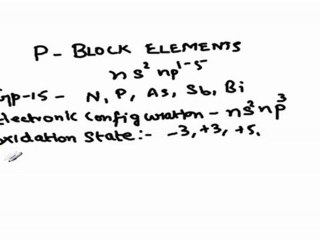 P- BLOCK ELEMENTS
ns² np¹⁻⁵
Gp-15 - N, P, As, Sb, Bi
Electronic Configuration - ns² np³
oxidation State:- -3, +3, +5.